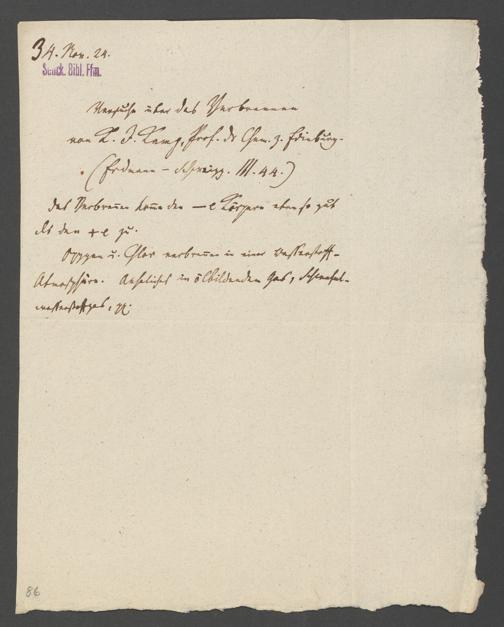 34. Nov. 24.
Senck. Bibl. Ffm.
Versuche über das Verbrennen
von K. J. Kemp, Prof. der Chem. z. Edinburg.
(Erdmann – Schweigg. III. 44.)
Das Verbrennen komme den – e Körpern ebenso gut
als den + e zu.
Oxygen u. Chlor verbrennen in einer Wasserstoff-
Atmosphäre. Aehnliches in ölbildendem Gas, Schwefel-
wasserstoffgas, pp.
86